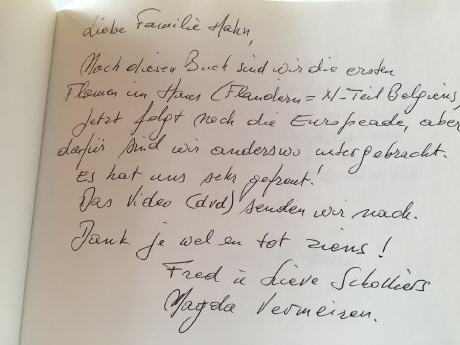 Liebe Familie Hahn,
Nach diesen Buch sind wir die ersten
Flamen im Haus (Flandern = N-Teil Belgiens)
Jetzt folgt noch die Europeade, aber
dafür sind wir anderswo untergebracht.
Es hat uns sehr gefreut!
Das Video (dvd) senden wir nach.
Dank je wel en tot ziens!
Fred u Lieve Scholliers
Magda Vermeiren.